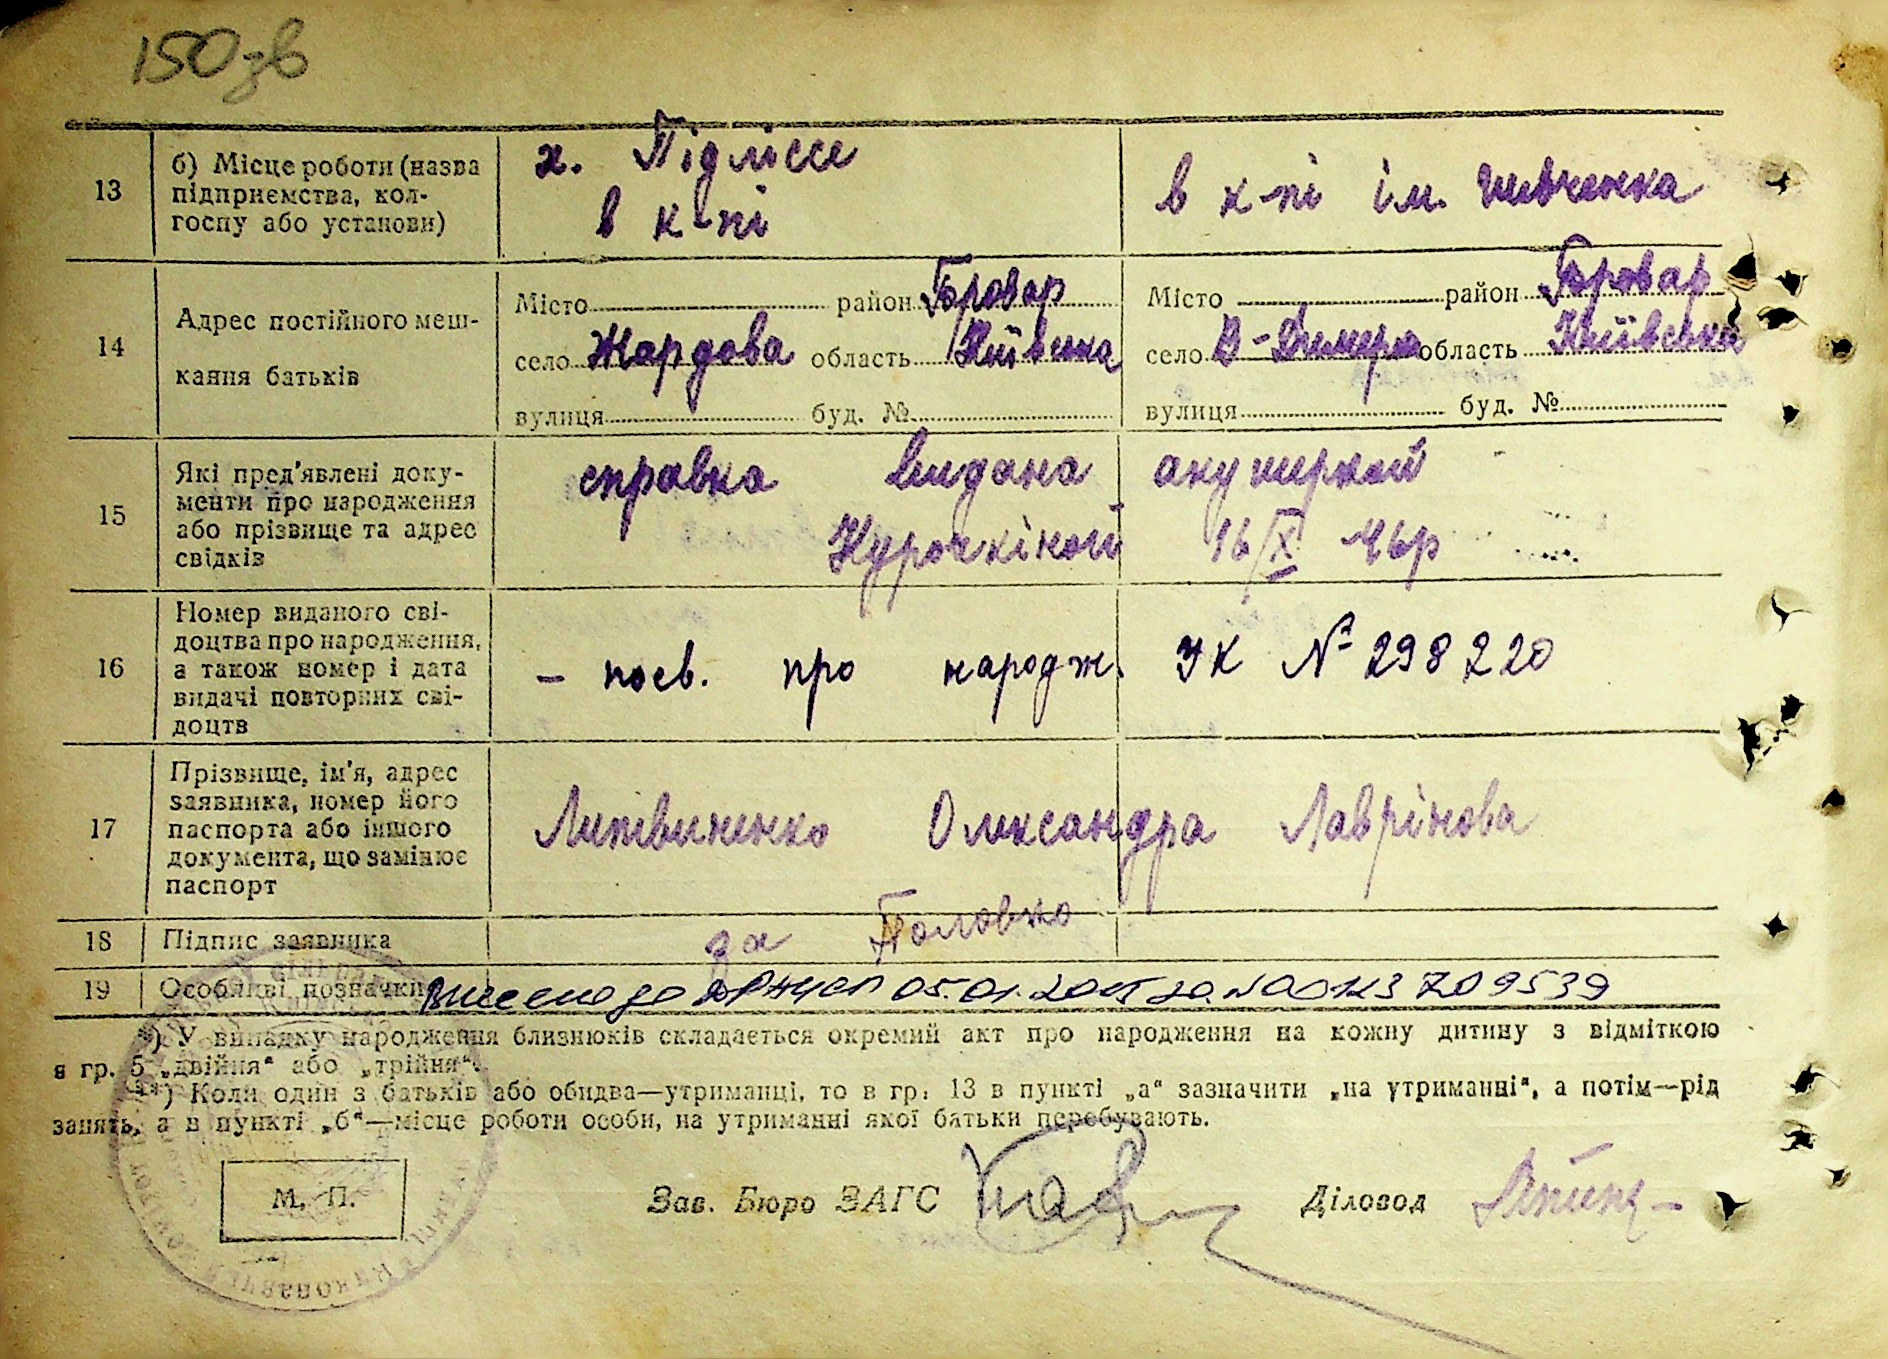 150зв
13 б) Місце роботи (назва підприємства, кол-госпу або установи)
х. Підлісся
в к-пі
в х-пі ім. Шевченка
14 Адрес постійного меш-кання батьків
Місто район Бровар
село Жардова область Київська
вулиця буд. №
Місто район Бровар
село В-Димерка область Київська
вулиця буд. №
15 Які пред'явлені доку-менти про народження або прізвище та адрес свідків
справка видана акушеркой
Курочкіной 16/X 46р
16 Номер виданого сві-доцтва про народження, а також номер і дата видачі повторних сві-доцтв
– посв. про народж. УК № 298220
17 Прізвище, ім'я, адрес заявника, номер його паспорта або іншого документа, що замінює паспорт
Литвиненко Олександра Лаврінова
18 Підпис заявника
за Головко
19 Особливі позначки
Внесено до ДРАЦСГ 05.01.2015 за №00123709539
*) У випадку народження близнюків складається окремий акт про народження на кожну дитину з відміткою
в гр. 5 „двійня“ або „трійня“.
**) Коли один з батьків або обидва—утриманці, то в гр. 13 в пункті „а“ зазначити „на утриманні“, а потім—рід
занять, а в пункті „б“—місце роботи особи, на утриманні якої батьки перебувають.
М. П.
Зав. Бюро ЗАГС
Діловод